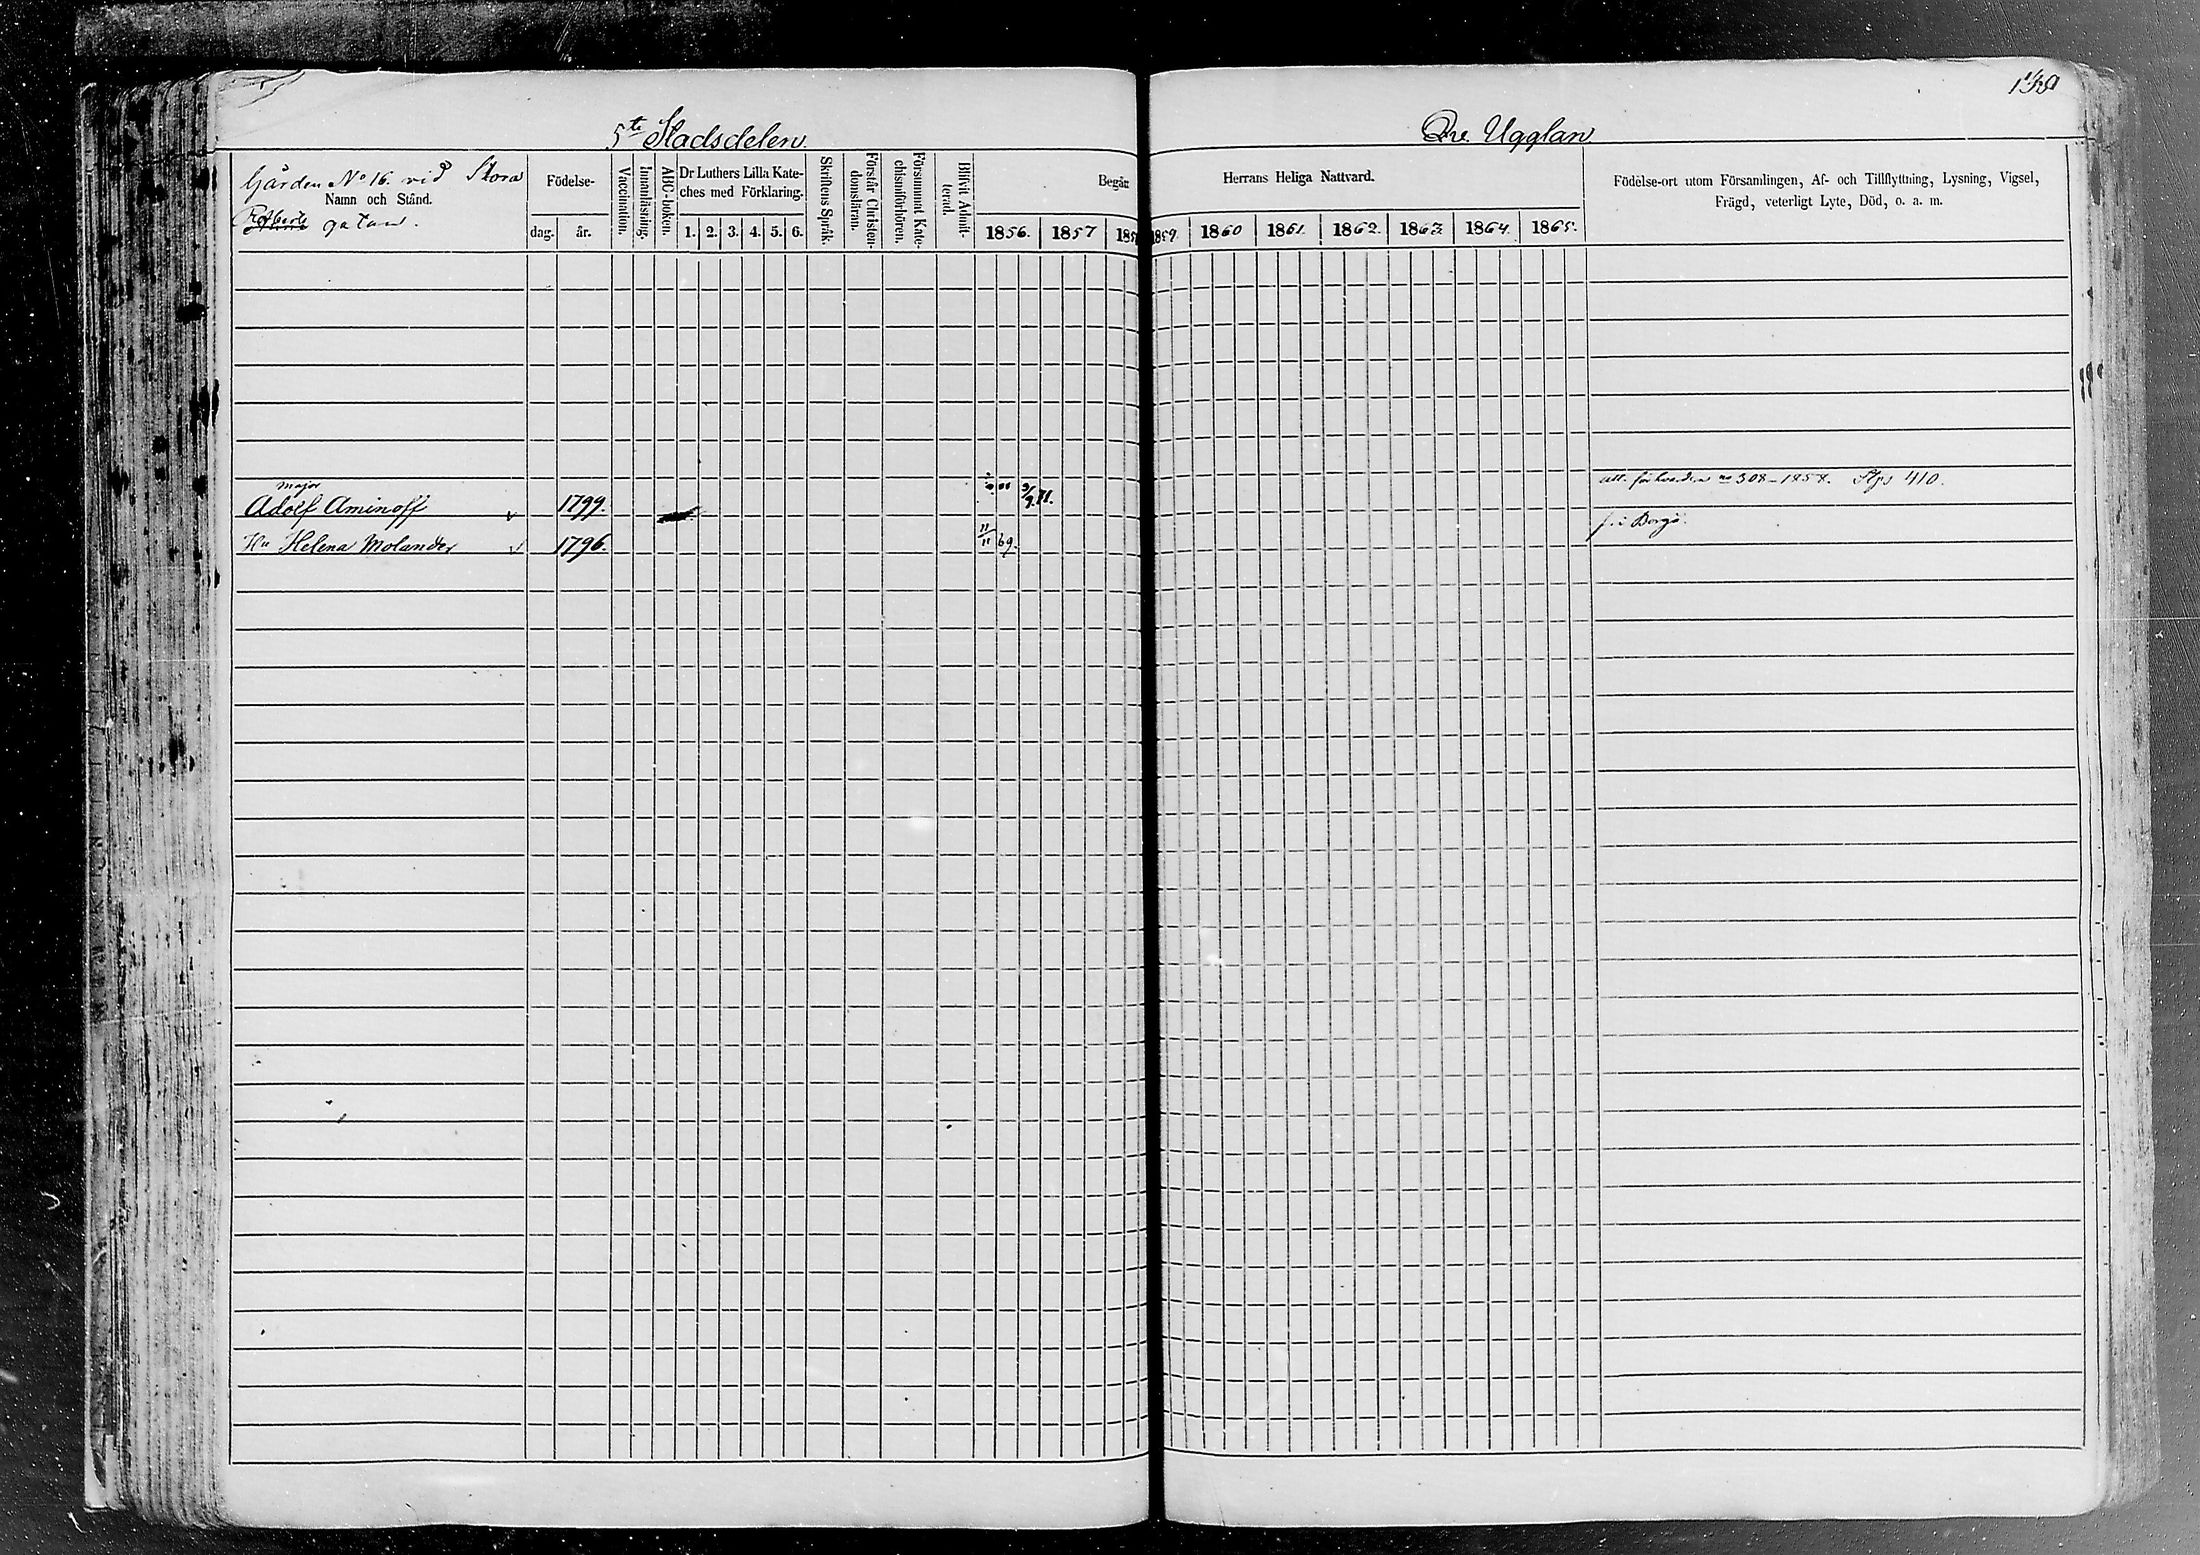 5te Stadsdelen.
Qre. Ugglan.
Gården No 16. vid Stora
Namn och Stånd.
Roberts gatan.
Födelse-
dag. år.
Vaccination.
Innanläsning.
ABC-boken.
Dr Luthers Lilla Kate-
ches med Förklaring.
1. 2. 3. 4. 5. 6.
Skriftens Språk.
Förstår Christen-
domsläran.
Försummat Kate-
chismiförhören.
Blifvit Admit-
terad.
Begår
Herrans Heliga Nattvard.
1856. 1857 185 1859. 1860 1861. 1862. 1863. 1864. 1865.
Födelse-ort utom Församlingen, Af- och Tillflyttning, Lysning, Vigsel,
Frägd, veterligt Lyte, Död, o. a. m.
major
Adolf Aminoff v 1799.
att. förhvarden no 308-1858. 410.
Hu Helena Molander v 1796. 11/11 69.
f. i Borgå.